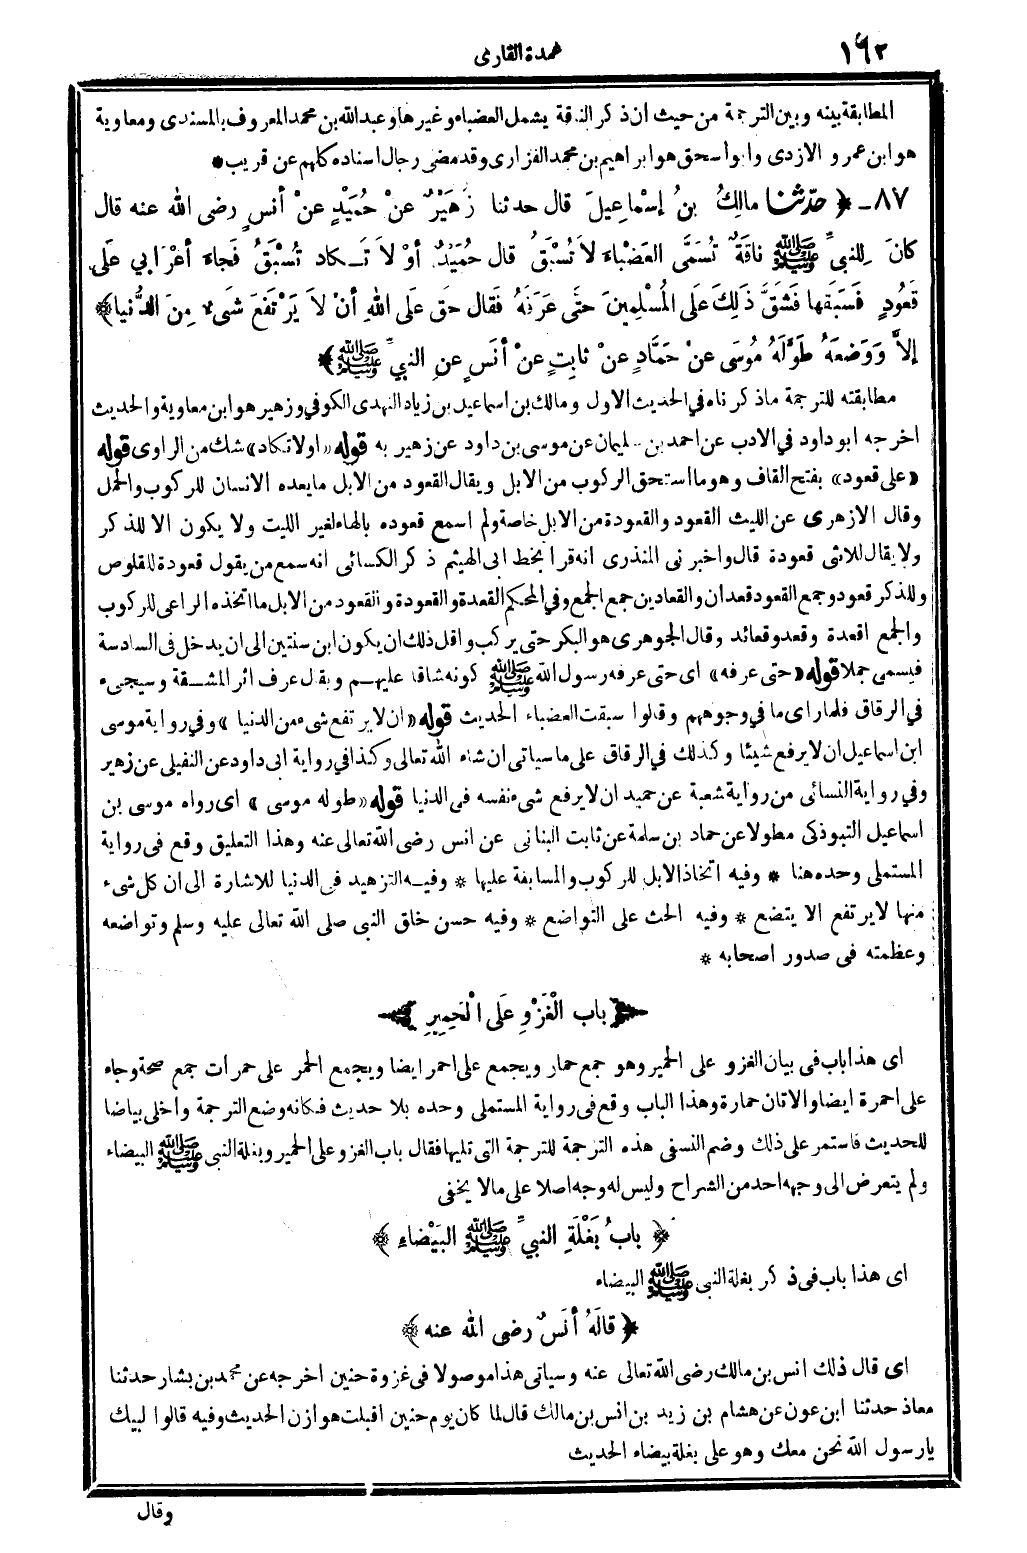 ١٦٢
عمدة القارى
المطابقة بينه وبين الترجمة من حيث ان ذكر الناقة يشمل العضباء وغيرها وعبد الله بن محمد المعروف بالمسندى ومعاوية
هو ابن عمرو الازدى وابو اسحق هو ابراهيم بن محمد الفزارى وقد مضى رجال اسناده كلهم عن قريب *
٨٧ - ﴿ حدّثنا مالِكُ بنُ إسْماعِيلَ قال حدثنا زُهَيْرٌ عنْ حُمَيْدٍ عنْ أنسٍ رضى الله عنه قال
كانَ لِلنبيِّ ﷺ ناقَةٌ تُسَمَّى العَضْباءَ لاَ تُسْبَقُ قال حُمَيْدٌ أوْ لاَ تَكاد تُسْبَقُ فَجاءَ أعْرَابي علَى
قَعُودٍ فَسَبَقَها فَشَقَّ ذَلِكَ عَلَى المُسْلِمِينَ حتَّى عَرَفَهُ فَقال حَق علَى اللهِ أنْ لاَ يَرْتَفعَ شَىءٌ مِنَ الدُّنيا ﴾
إلاَّ وَوَضعَهُ طَوَّلَهُ مُوسَى عنْ حَمَّادٍ عنْ ثابِتٍ عنْ أنَسٍ عنِ النبيِّ ﷺ ﴾
مطابقته للترجمة ماذكرناه في الحديث الاول ومالك بن اسماعيل بن زياد النهدى الكوفي وزهير هو ابن معاوية والحديث
اخرجه ابو داود في الادب عن احمد بن سليمان عن موسى بن داود عن زهير به قوله «او لا تكاد» شك من الراوى قوله
«على قعود» بفتح القاف وهو ما استحق الركوب من الابل ويقال القعود من الابل ما يعده الانسان للركوب والحمل
وقال الازهرى عن الليث القعود والقعودة من الابل خاصة ولم اسمع قعوده بالهاء لغير الليت ولا يكون الا للذكر
ولا يقال للانثى قعودة قال واخبرنى المنذرى انه قرا بخط ابى الهيثم ذكر الكسائى انه سمع من يقول قعودة للقلوص
وللذكر قعود وجمع القعود قعدان والقعادين جمع الجمع وفي المحكم القعدة والقعودة والقعود من الابل ما اتخذه الراعى للركوب
والجمع اقعدة وقعد وقعائد وقال الجوهرى هو البكر حتى يركب واقل ذلك ان يكون ابن سنتين الى ان يدخل فى السادسة
فيسمى جملا قوله «حتى عرفه» اى حتى عرفه رسول الله ﷺ كونه شاقا عليهم ويقل عرف اثر المشقة وسيجيء
في الرقاق فلما راى ما في وجوههم وقالوا سبقت العضباء الحديث قوله «ان لا يرتفع شىء من الدنيا» وفي رواية موسى
ابن اسماعيل ان لا يرفع شيئا وكذلك في الرقاق على ما سياتى ان شاء الله تعالى وكذا في رواية ابى داود عن النفيلى عن زهير
وفي رواية النسائى من رواية شعبة عن حميد ان لا يرفع شىء نفسه فى الدنيا قوله «طوله موسى» اى رواه موسى بن
اسماعيل التبوذكى مطولا عن حماد بن سلمة عن ثابت البنانى عن انس رضى الله تعالى عنه وهذا التعليق وقع فى رواية
المستملى وحده هنا * وفيه اتخاذ الابل للركوب والمسابقة عليها * وفيه التزهيد فى الدنيا للاشارة الى ان كل شىء
منها لا يرتفع الا يتضع * وفيه الحث على التواضع * وفيه حسن خلق النبى صلى الله تعالى عليه وسلم وتواضعه
وعظمته فى صدور اصحابه *
﴿ باب الْغَزْوِ عَلَى الْحَمِيرِ ﴾
اى هذا باب فى بيان الغزو على الحمير وهو جمع حمار ويجمع على احمر ايضا ويجمع الحمر على حمرات جمع صحة وجاء
على احمرة ايضا والاتان حمارة وهذا الباب وقع فى رواية المستملى وحده بلا حديث فكانه وضع الترجمة واخلى بياضا
للحديث فاستمر على ذلك وضم النسفى هذه الترجمة للترجمة التى تليها فقال باب الغزو على الحمير وبغلة النبى ﷺ البيضاء
ولم يتعرض الى وجهه احد من الشراح وليس له وجه اصلا على مالا يخفى
﴿ بابُ بَغْلَةِ النبيِّ ﷺ البَيْضاءِ ﴾
اى هذا باب فى ذكر بغلة النبى ﷺ البيضاء
﴿ قالَهُ أنَسٌ رضى الله عنه ﴾
اى قال ذلك انس بن مالك رضى الله تعالى عنه وسياتى هذا موصولا فى غزوة حنين اخرجه عن محمد بن بشار حدثنا
معاذ حدثنا ابن عون عن هشام بن زيد بن انس بن مالك قال لما كان يوم حنين اقبلت هوازن الحديث وفيه قالوا لبيك
يارسول الله نحن معك وهو على بغلة بيضاء الحديث
وقال